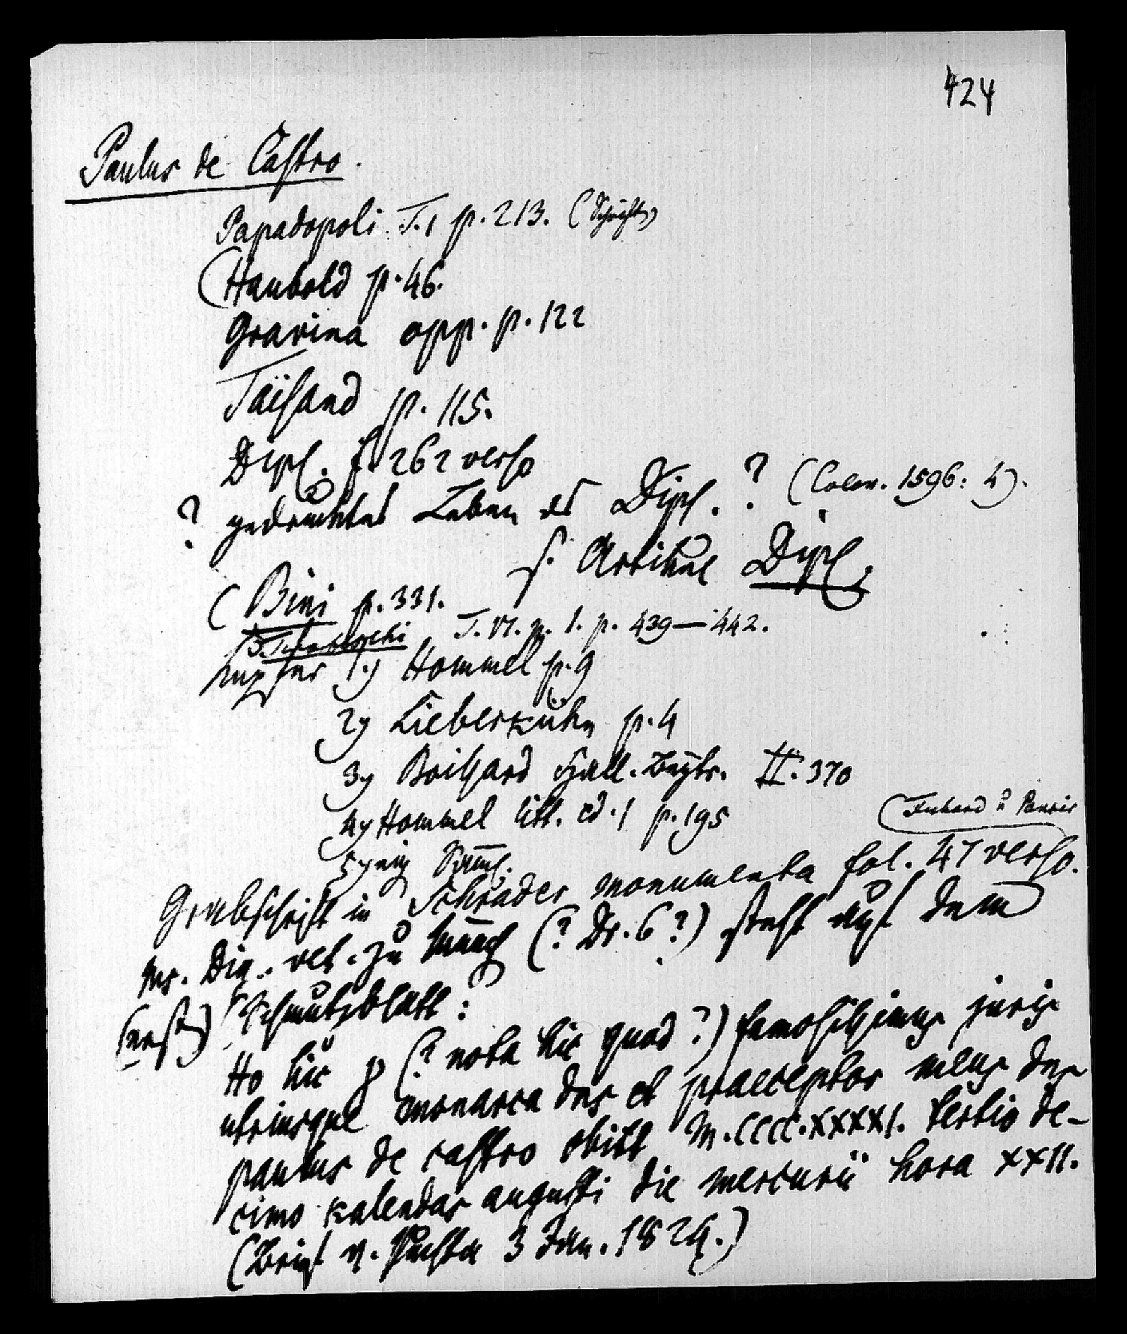 424
Paulus de Castro.
Papadopoli T. 1 p. 213. (Schriften)
(Haubold p. 46.
Gravina opp. p. 122
Taisand p. 115.
Dipl. f. 262 verso
? gedrucktes Leben des Dipl. ? (Colon. 1596: 4).
s. Artikel Dipl.
(Bini p. 331.
Tiraboschi T. VI. p. 1. p. 439—442.
Kupfer 1.) Hommel p. 9
2) Lieberkühn p. 4
3) Boissard Hall. Beytr. II. 370
4) Hommel litt. ed. 1 p. 195
5)
(Fichard u Panzir
Grabschrift in Schrader monumenta fol. 47 verso.
Ms. Dig. vet. zu (? Dr. 6?) steht auf dem
Schmutzblatt:
No hic (? nota hic quod ?) famosissimus juris
utriusque monarca dns et praeceptor meus dns
paulus de castro obiit M.CCCC.XXXXI. tertio de-
cimo kalendas augusti die mercurii hora XXII.
(Brief v. Puchta 3 Jan. 1829.)